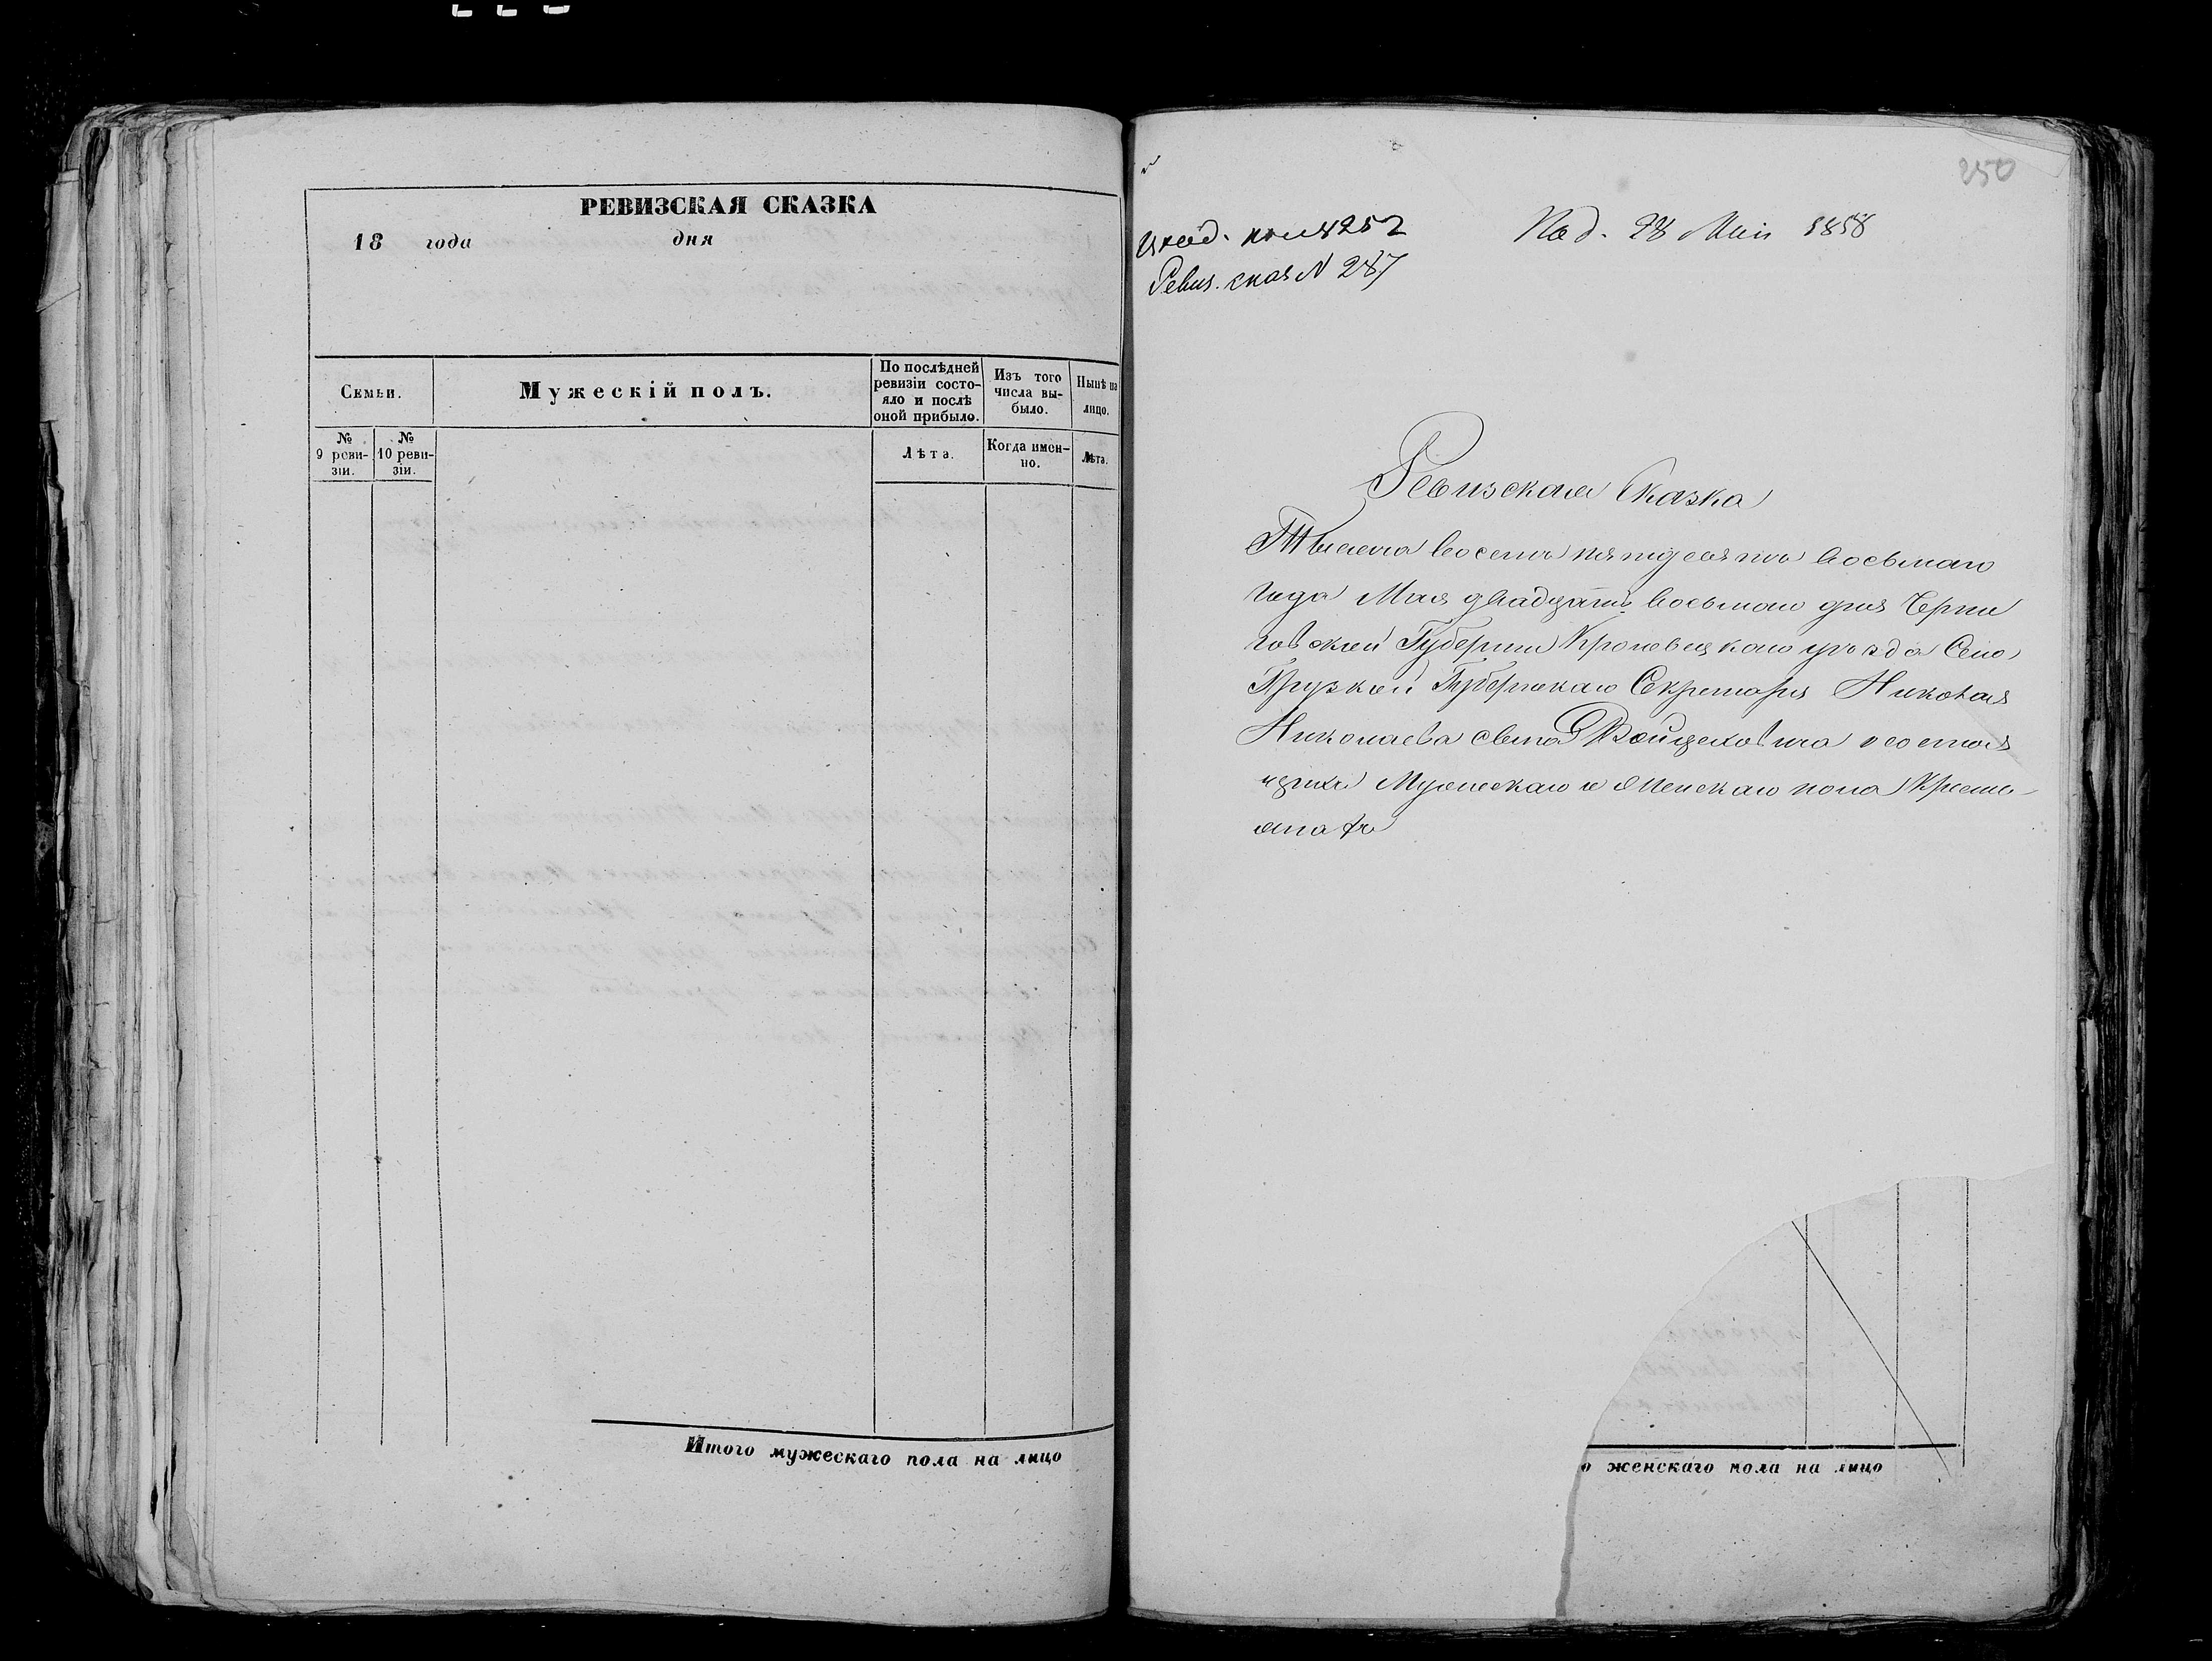 РЕВИЗСКАЯ СКАЗКА
18 года дня
Семьи.
Мужескій полъ.
По послѣдней ревизіи состо-
яло и послѣ
оной прибыло.
Изъ того
числа вы-
было.
Нынѣ на
лицо.
№
9 реви-
зіи.
№
10 реви-
зіи.
Лѣта.
Когда имен-
но.
Лѣта.
Итого мужескаго пола на лицо
250
Под. 28 Маія 1858
Ревиз. сказ N 287
Ревизская Сказка
Тысеча восемь пятдесятъ восьмаго
года Мая двадцать восьмаго дня Черни
говской Губерніи Кролевецкаго уѣзда Села
Грузкой Губернскаго Секретаря Николая
Николаева сына Войцеховича о состоя
щихъ Мужескаго и Женскаго пола Крестья